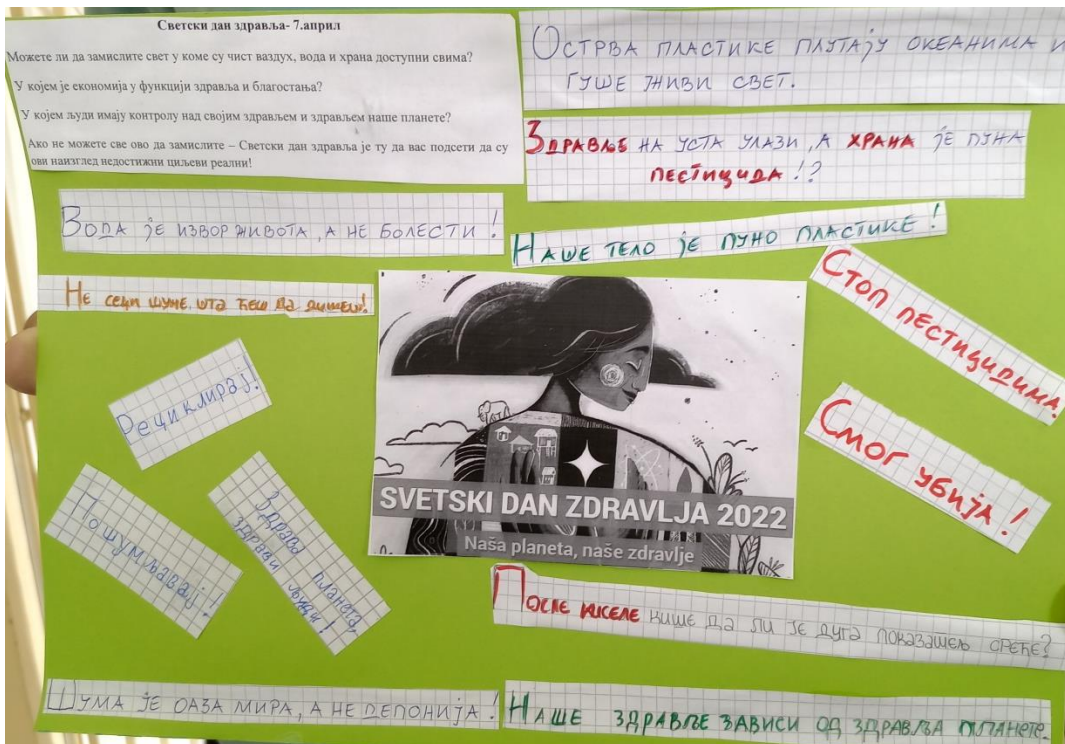 Светски дан здравља- 7.април
Можете ли да замислите свет у коме су чист ваздух, вода и храна доступни свима?
У којем је економија у функцији здравља и благостања?
У којем људи имају контролу над својим здрављем и здрављем наше планете?
Ако не можете све ово да замислите – Светски дан здравља је ту да вас подсети да су
ови наизглед недостижни циљеви реални!
Острва пластике плутају океанима и
гуше живи свет.
Здравље на уста улази, а храна је пуна
пестицида!?
Вода је извор живота, а не болести!
Наше тело је пуно пластике!
Не сеци шуме, шта ћеш да дишеш!
Стоп пестицидима.
Рециклирај!
Смог убија!
Пошумљавај!
Здрава планета,
здрави људи!
SVETSKI DAN ZDRAVLJA 2022
Naša planeta, naše zdravlje
После киселе кише да ли је дуга показатељ среће?
Шума је оаза мира, а не депонија!
Наше здравље зависи од здравља планете.